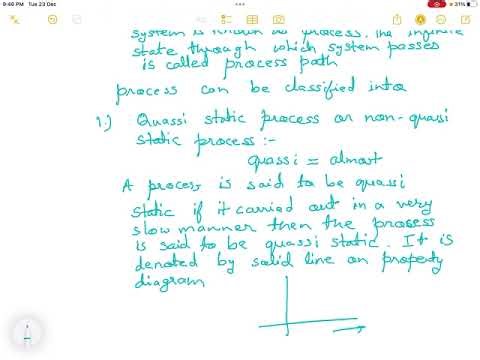 9:46 PM Tue 23 Dec
31%
system is known as process. The infinite
state through which system posses
is called process path
process can be classified into
1.) Quassi static process or non-quasi
static process :-
quassi = almost
A process is said to be quassi
static if it carried out in a very
slow manner then the process
is said to be quassi static. It is
denoted by solid line on property
diagram